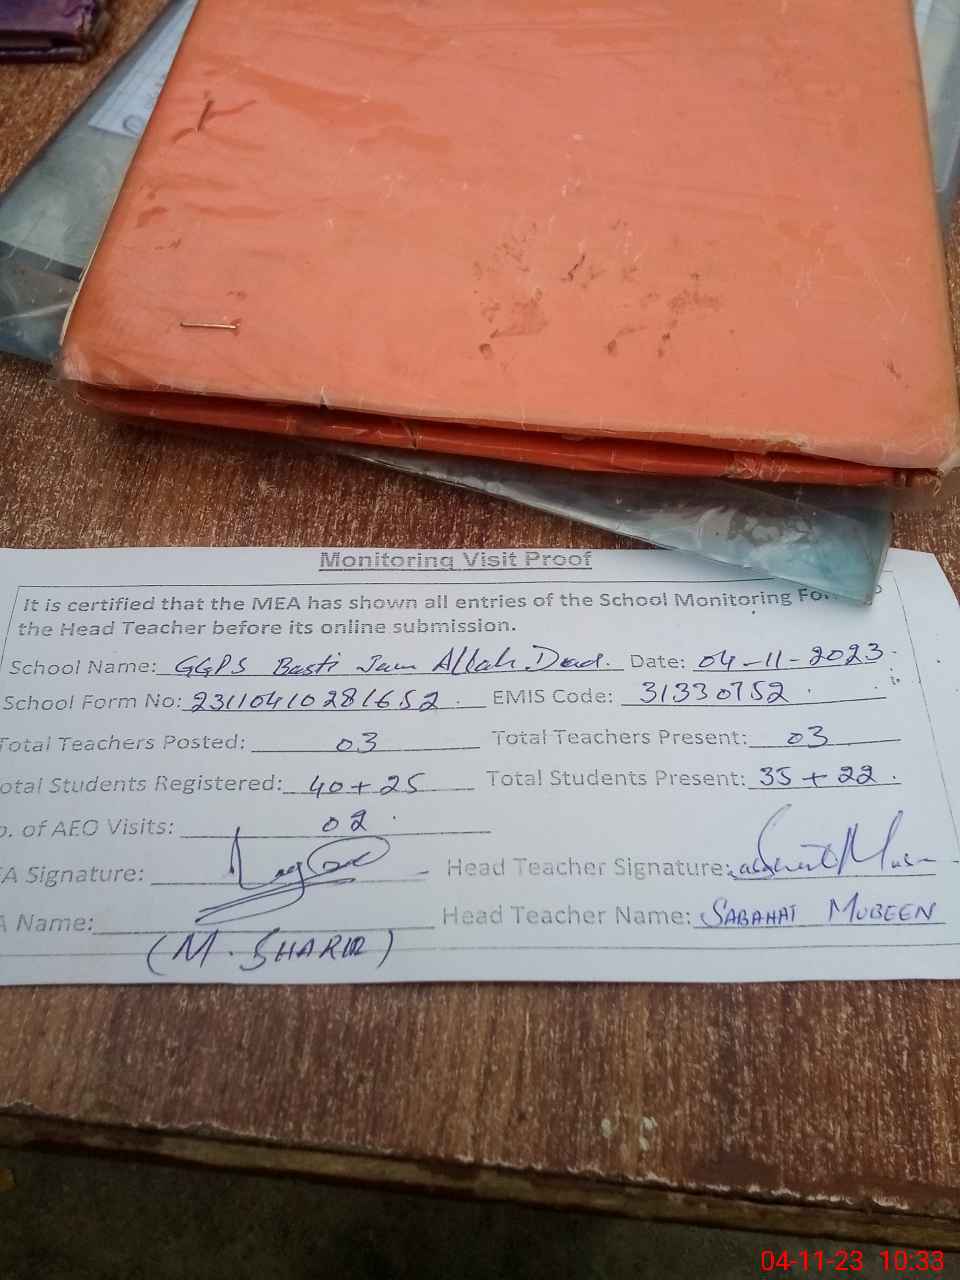 Monitoring Visit Proof
It is certified that the MEA has shown all entries of the School Monitoring
the Head Teacher before its online submission.
School Name: GGPS Basti Jam Allah Dad. Date: 04-11-2023
School Form No: 23110410281652 EMIS Code: 31330752
Total Teachers Posted: 03 Total Teachers Present: 03
otal Students Registered: 40+25 Total Students Present: 35+22.
o. of AEO Visits: 02
EA Signature: Head Teacher Signature:
A Name: Head Teacher Name: SABAHAT MUBEEN
(M. SHARIF)
04-11-23 10:33